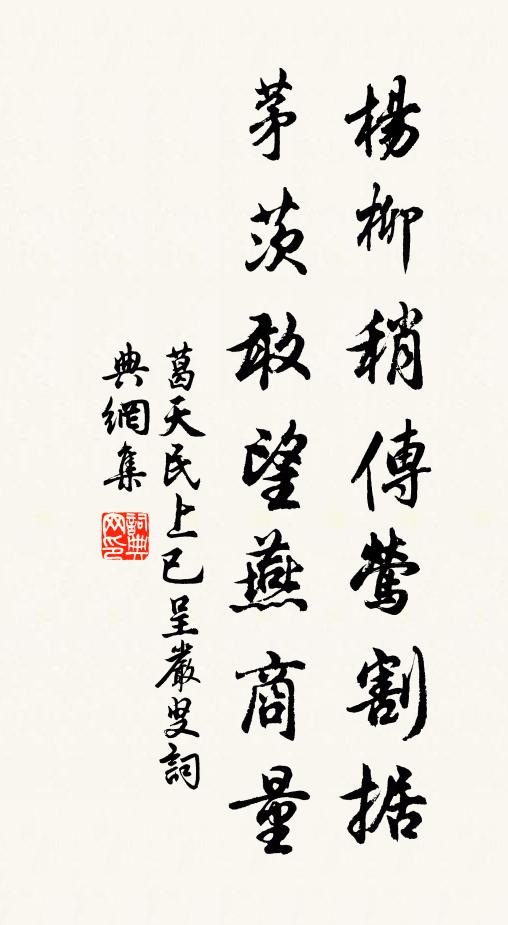 楊柳稍傳鶯割据
茅茨敢望燕商量
葛天民上巳呈嚴叟詞
典網集
詞典网印